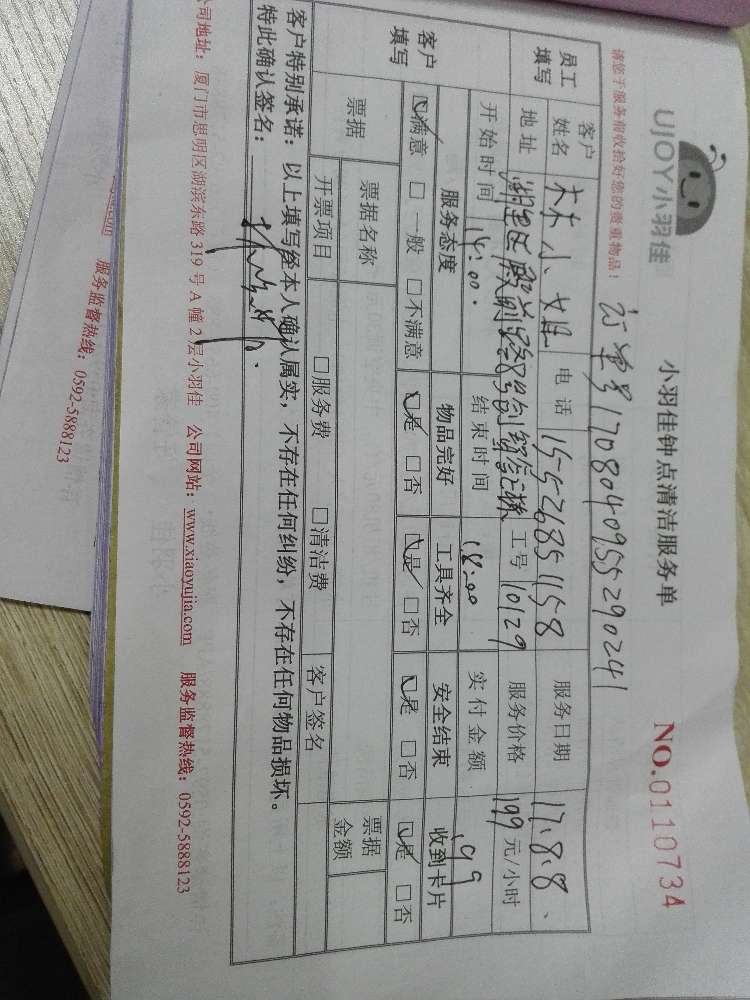 UJOY小羽佳
小羽佳钟点清洁服务单
NO.0110734
请您于服务前收拾好您的贵重物品!
订单号1708040955290241
员工填写
客户姓名 林小姐 电话 15526851158 服务日期 17.8.8、
地址 工号 10129 服务价格 199 元/小时
开始时间 14:00. 结束时间 18:00 实付金额 199
客户填写
服务态度 物品完好 工具齐全 安全结束 收到卡片
☑满意 □一般 □不满意 ☑是 □否 ☑是 □否 ☑是 □否 ☑是 □否
票据 票据名称 票据金额
开票项目 □服务费 □清洁费 客户签名
客户特别承诺:以上填写经本人确认属实,不存在任何纠纷,不存在任何物品损坏。
特此确认签名:
公司地址:厦门市思明区湖滨东路 319 号 A 幢 2 层小羽佳 公司网站:www.xiaoyujia.com 服务监督热线:0592-5888123
服务监督热线:0592-5888123